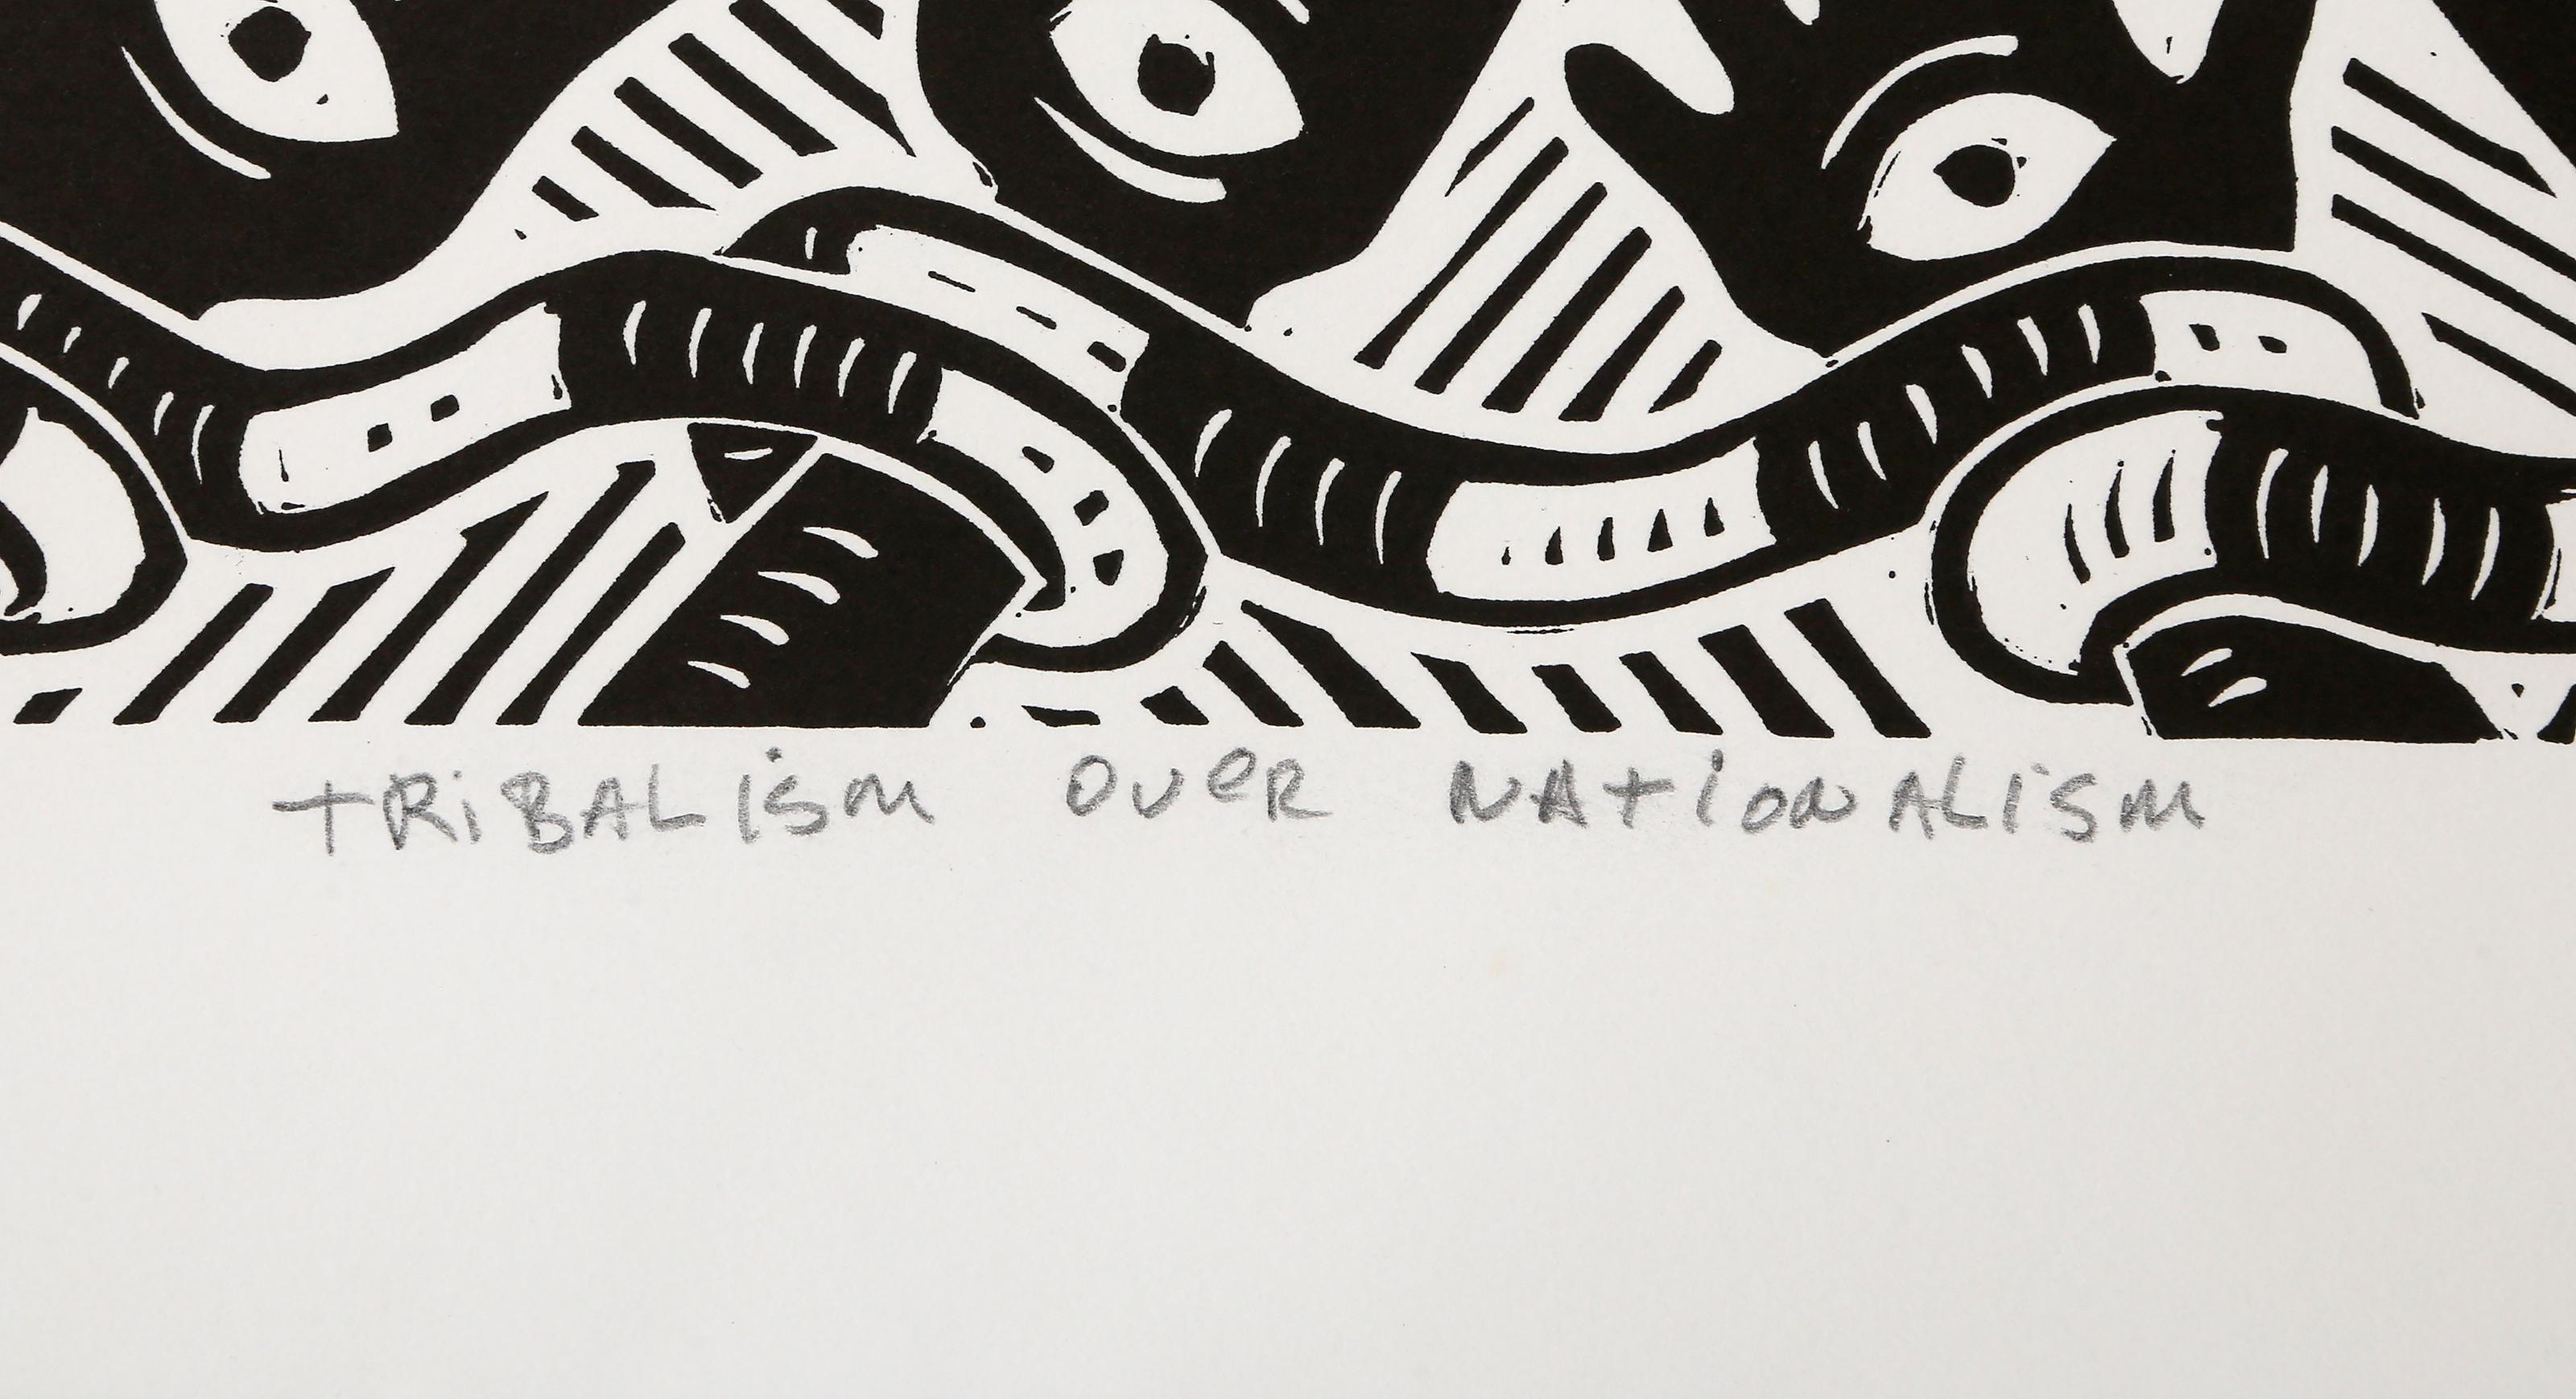 tRiBALism over NAtionALism